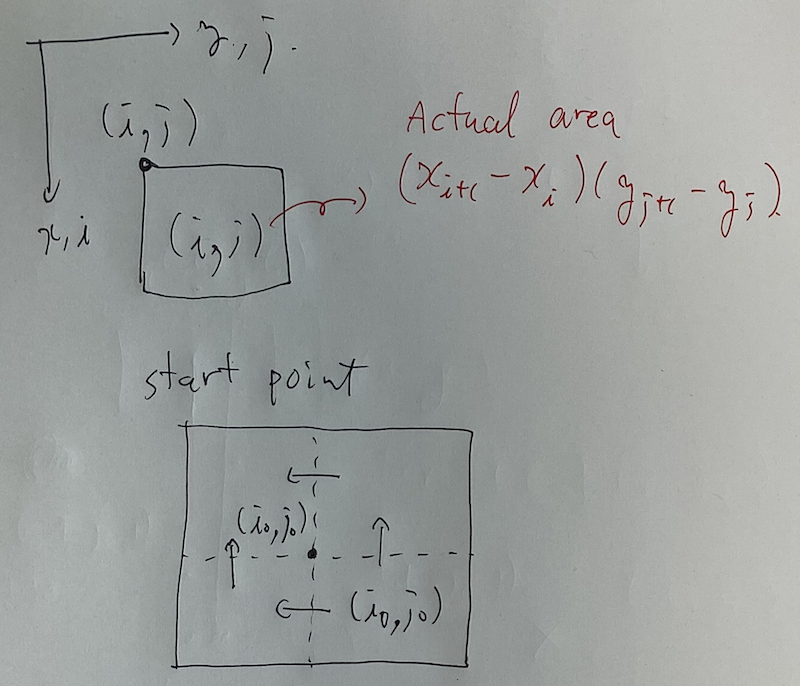 y, j.
(i, j)
x, i
(i, j)
Actual area
(x_{i+1} - x_i)(y_{j+1} - y_j).
start point
(i_0, j_0)
(i_0, j_0)